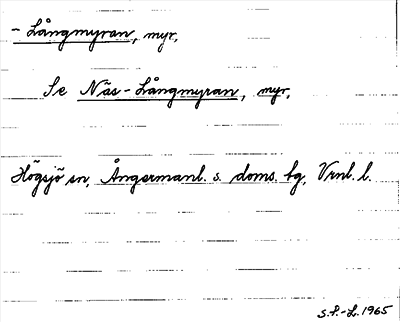 - Långmyran, myr,
Se Näs-Långmyran, myr,
Högsjö sn, Ångermanl. s. doms. tg, Vrnl. l.
S.F.-L. 1965